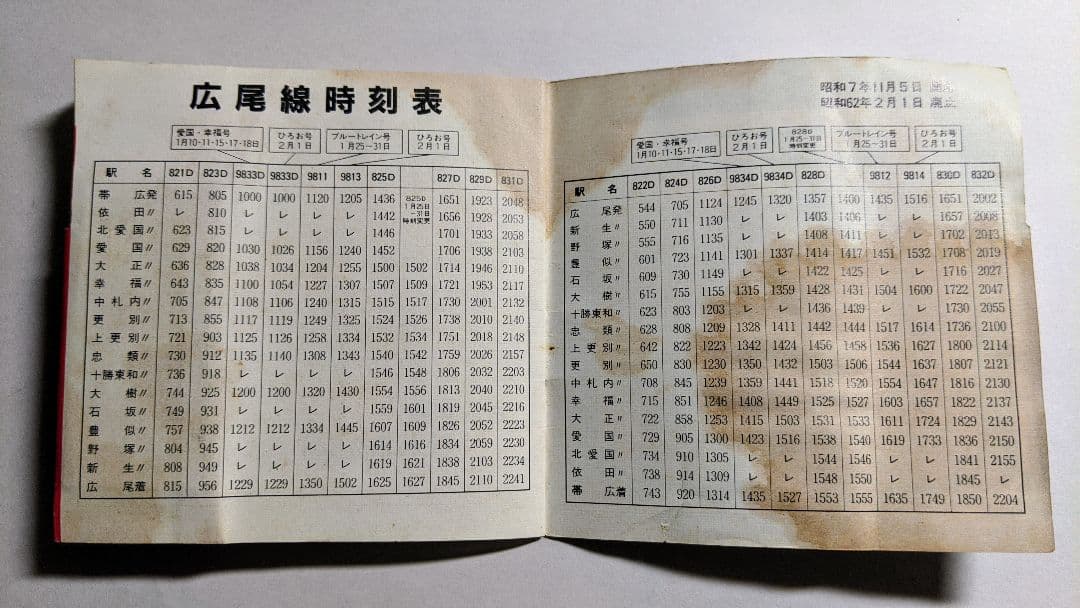 広尾線時刻表
愛国・幸福号
1月10・11・15・17・18日
ひろお号
2月1日
ブルートレイン号
1月25〜31日
ひろお号
2月1日
駅 名 821D 823D 9833D 9833D 9811 9813 825D 827D 829D 831D
825D
1月25日
〜31日
時刻変更
帯 広発 615 805 1000 1000 1120 1205 1436 1651 1923 2048
依 田〃 レ 810 レ レ レ レ 1442 1656 1928 2053
北愛国〃 623 815 レ レ レ レ 1446 1701 1933 2058
愛 国〃 629 820 1030 1026 1156 1240 1452 1706 1938 2103
大 正〃 636 828 1038 1034 1204 1255 1500 1502 1714 1946 2110
幸 福〃 643 835 1100 1054 1227 1307 1507 1509 1721 1953 2117
中札内〃 705 847 1108 1106 1240 1315 1515 1517 1730 2001 2132
更 別〃 713 855 1117 1119 1249 1325 1524 1526 1738 2010 2140
上更別〃 721 903 1125 1126 1258 1334 1532 1534 1751 2018 2148
忠 類〃 730 912 1135 1140 1308 1343 1540 1542 1759 2026 2157
十勝東和〃 736 918 レ レ レ レ 1546 1548 1806 2032 2203
大 樹〃 744 925 1200 1200 1320 1430 1554 1556 1813 2040 2210
石 坂〃 749 931 レ レ レ レ 1559 1601 1819 2045 2216
豊 似〃 757 938 1212 1212 1334 1445 1607 1609 1826 2052 2223
野 塚〃 804 945 レ レ レ レ 1614 1616 1834 2059 2230
新 生〃 808 949 レ レ レ レ 1619 1621 1838 2103 2234
広 尾着 815 956 1229 1229 1350 1502 1625 1627 1845 2110 2241
昭和7年11月5日
昭和62年2月1日 廃止
愛国・幸福号
1月10・11・15・17・18日
ひろお号
2月1日
828D
1月25〜31日
時刻変更
ブルートレイン号
1月25〜31日
ひろお号
2月1日
駅 名 822D 824D 826D 9834D 9834D 828D 9812 9814 830D 832D
広 尾発 544 705 1124 1245 1320 1357 1400 1435 1516 1651 2002
新 生〃 550 711 1130 レ レ 1403 1406 レ レ 1657 2008
野 塚〃 555 716 1135 レ レ 1408 1411 レ レ 1702 2013
豊 似〃 601 723 1141 1301 1337 1414 1417 1451 1532 1708 2019
石 坂〃 609 730 1149 レ レ 1422 1425 レ レ 1716 2027
大 樹〃 615 755 1155 1315 1359 1428 1431 1504 1600 1722 2047
十勝東和〃 623 803 1203 レ レ 1436 1439 レ レ 1730 2055
忠 類〃 628 808 1209 1328 1411 1442 1444 1517 1614 1736 2100
上更別〃 642 822 1223 1342 1424 1456 1458 1536 1627 1800 2114
更 別〃 650 830 1230 1350 1432 1503 1506 1544 1637 1807 2121
中札内〃 708 845 1239 1359 1441 1518 1520 1554 1647 1816 2130
幸 福〃 715 851 1246 1408 1449 1525 1527 1603 1657 1822 2137
大 正〃 722 858 1253 1415 1503 1531 1533 1611 1724 1829 2143
愛 国〃 729 905 1300 1423 1516 1538 1540 1619 1733 1836 2150
北愛国〃 734 910 1305 レ レ 1544 1546 レ レ 1841 2155
依 田〃 738 914 1309 レ レ 1548 1550 レ レ 1845 レ
帯 広着 743 920 1314 1435 1527 1553 1555 1635 1749 1850 2204